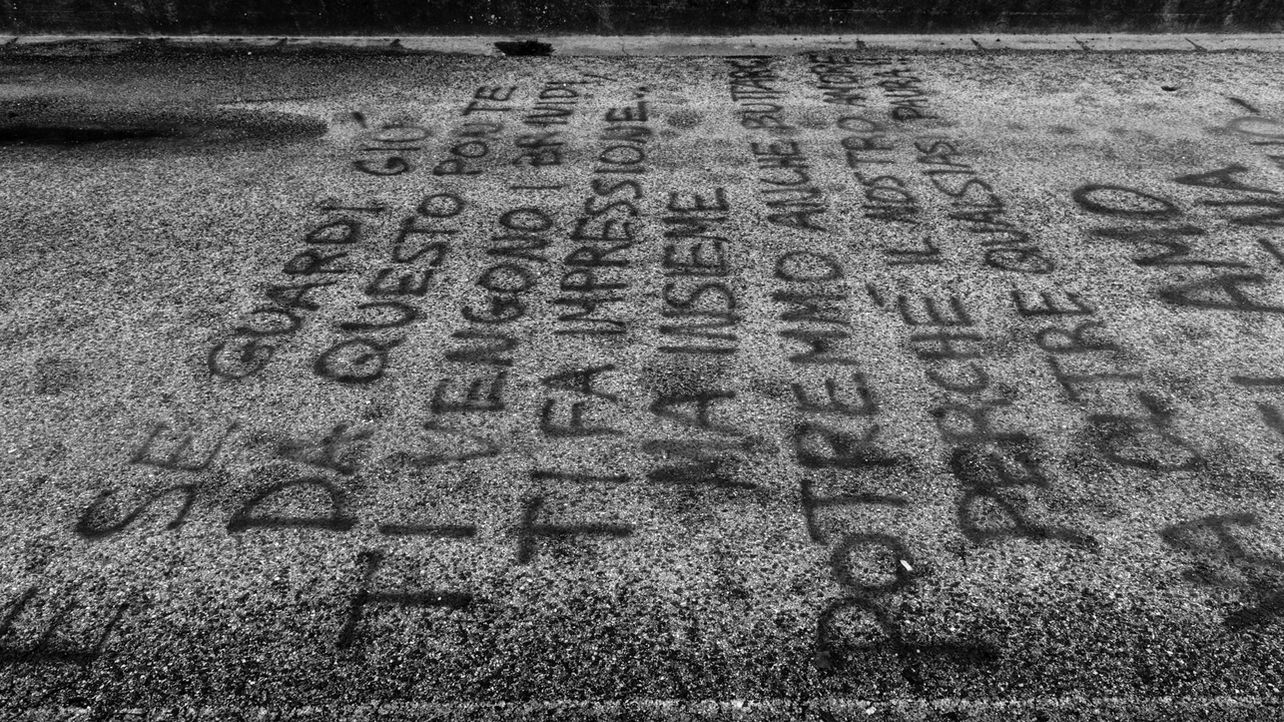 SE GUARDI GIÙ
DA QUESTO PONTE
TI VENGONO I BRIVIDI,
TI FA IMPRESSIONE..
MA INSIEME
POTREMMO ANCHE BUTTARCI
PERCHÉ IL NOSTRO AMORE
OLTRE QUALSIASI PAURA
AMO